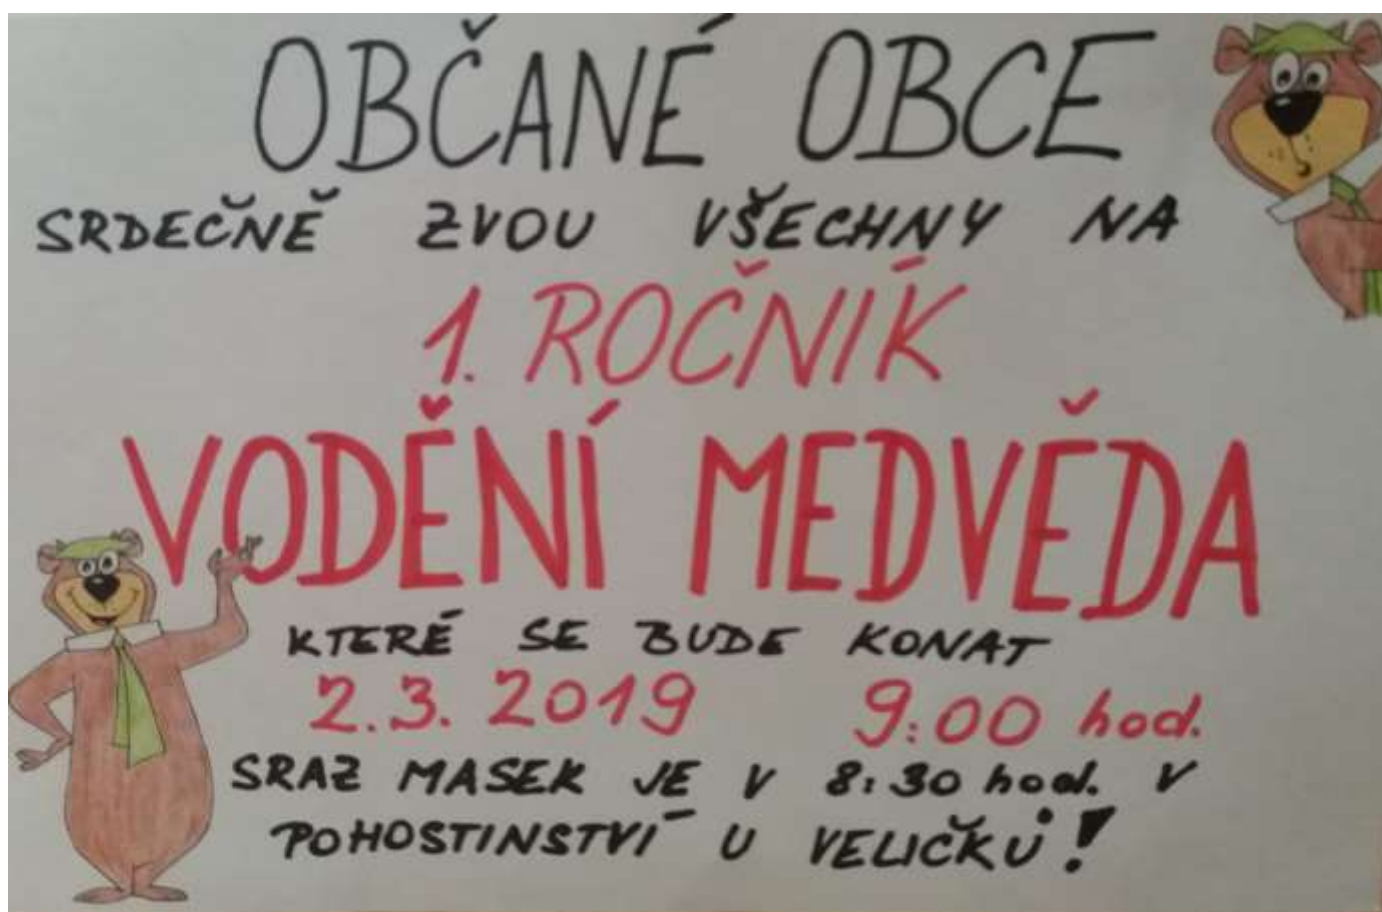 OBČANÉ OBCE
SRDEČNĚ ZVOU VŠECHNY NA
1. ROČNÍK
VODĚNÍ MEDVĚDA
KTERÉ SE BUDE KONAT
2.3. 2019 9:00 hod.
SRAZ MASEK JE V 8:30 hod. V
POHOSTINSTVÍ U VELIČKŮ!